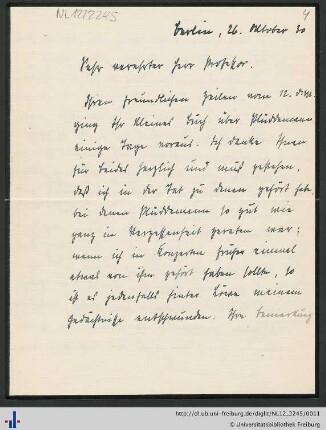 NL12/2245
4
Berlin, 26. Oktober 30
Sehr verehrter Herr Professor.
Ihren freundlichen Zeilen vom 12. ds.
ging Ihr kleines Buch über Plüddemann
einige Tage voraus. Ich danke Ihnen
für beides herzlich und muß gestehen,
daß ich in der Tat zu denen gehört habe
bei denen Plüddemann so gut wie
ganz in Vergessenheit geraten war;
wenn ich in Konzerten früher einmal
etwas von ihm gehört haben sollte, so
ist es jedenfalls hinter Löwe meinem
Gedächtnisse entschwunden. Ihre Bemerkung
http://dl.ub.uni-freiburg.de/diglit/NL12_2245/0011
© Universitätsbibliothek Freiburg